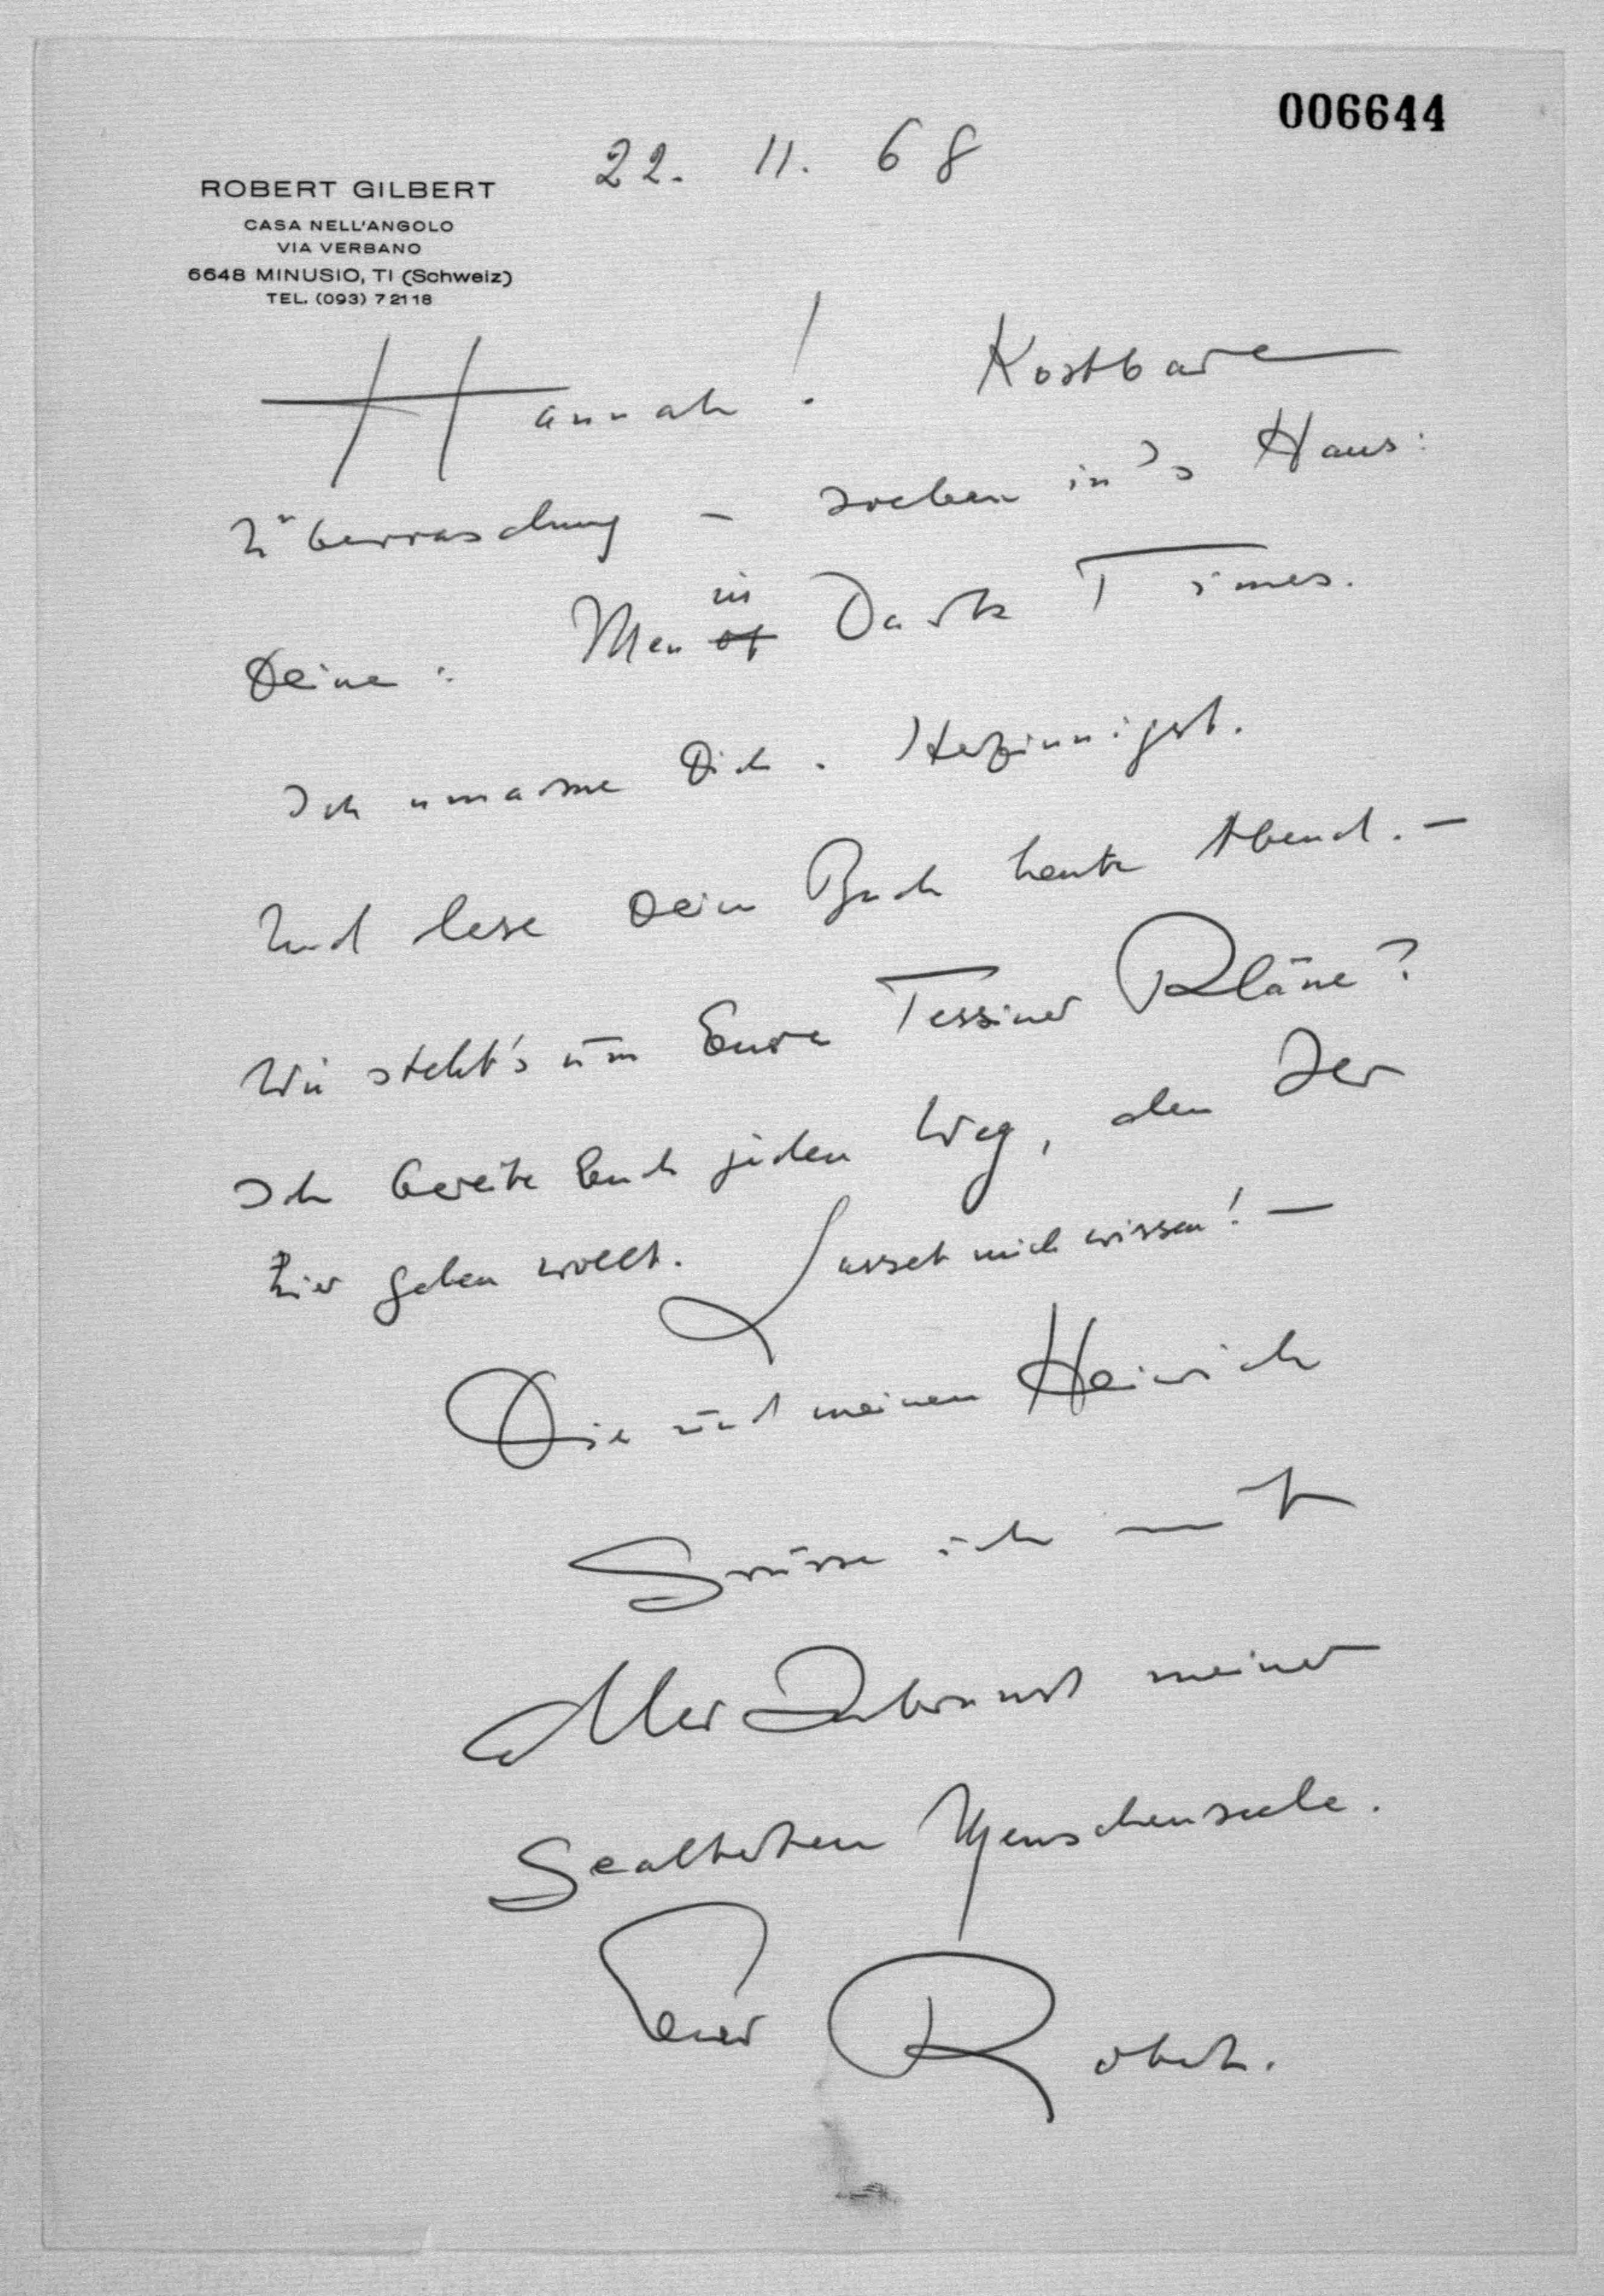 006644
22. 11. 68
ROBERT GILBERT
CASA NELL'ANGOLO
VIA VERBANO
6648 MINUSIO, TI (Schweiz)
TEL. (093) 7 21 18
Hannah! Kostbare
Überraschung – soeben in's Haus:
Deine: Men of in Dark Times.
Ich umarme Dich. Herzinnigst.
Und lese Dein Buch heute Abend. –
Wie steht's um Eure Tessiner Pläne?
Ich bereite Euch jeden Weg, den Ihr
hier gehen wollt. Lasset mich wissen! –
Die und meinen Heinrich
Grüsse ich mit
aller Inbrunst meiner
gealterten Menschenseele.
Euer Robert.